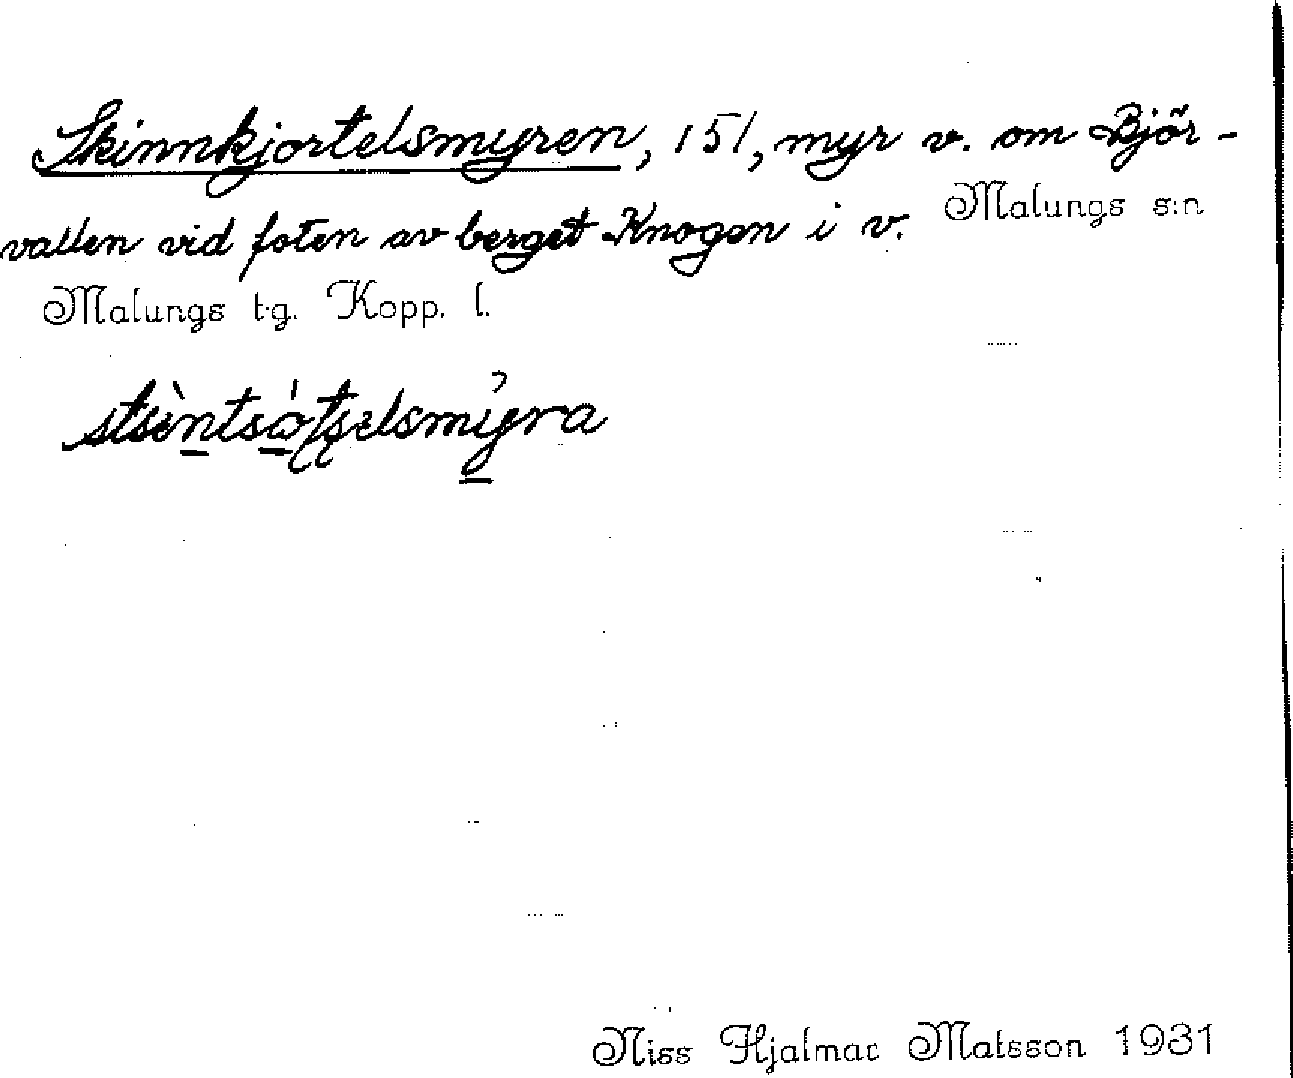 Skinnkjortelsmyren, 151, myr v. om Björ-
vallen vid foten av berget Knogen i v. Malungs s:n
Malungs tg. Kopp. l.
Niss Hjalmar Matsson 1931